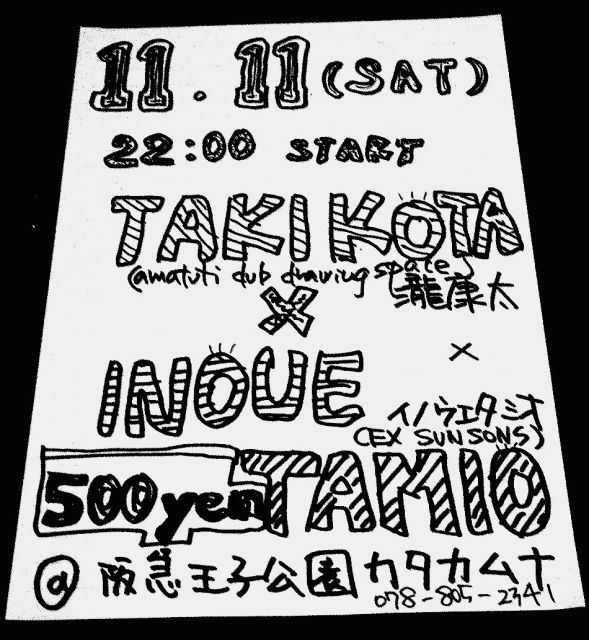 11.11(SAT)
22:00 START
TAKI KOTA
(amatuti dub drawing space)
瀧康太
×
INOUE
×
イノウエタミオ
(EX SUNSONS)
500yen
TAMIO
@ 阪急王子公園 カタカムナ
078-805-2341